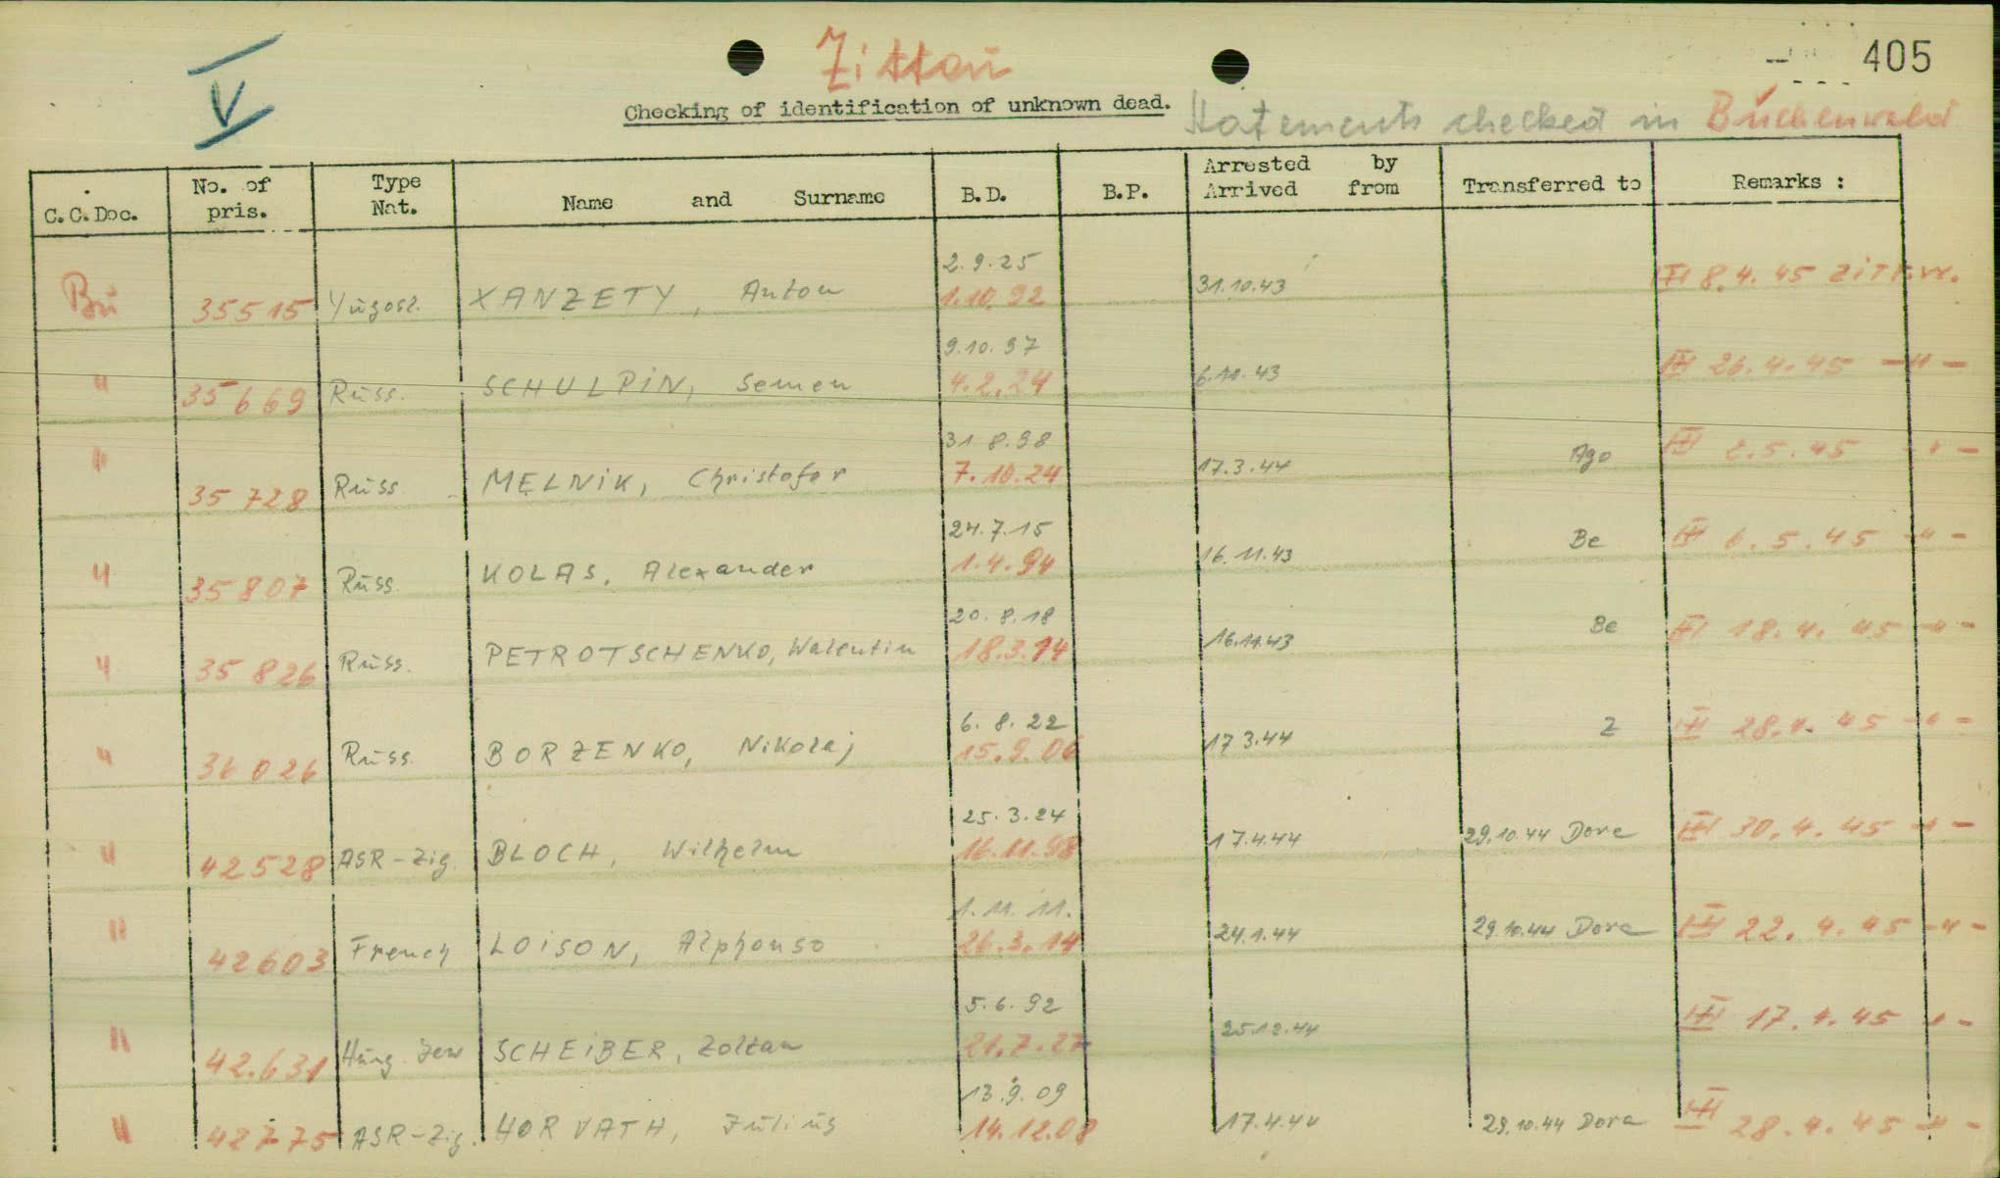 V
Zittau
405
Checking of identification of unknown dead. Statements checked in Buchenwald
C.C.Doc. No. of pris. Type Nat. Name and Surname B.D. B.P. Arrested by Arrived from Transferred to Remarks :
2.9.25
Bu 35515 Yugosl. XANZETY, Anton 1.10.92 31.10.43 III 8.4.45
9.10.97
" 35669 Russ. SCHULPIN, Semen 4.2.24 6.10.43 III 26.4.45 -"-
31 8.98
" 35728 Russ MELNIK, Christofor 7.10.24 17.3.44 Ago III 2.5.45 -"-
24.7.15
" 35807 Russ. KOLAS, Alexander 1.4.94 16.11.43 Be III 6.5.45 -"-
20.8.18
" 35826 Russ. PETROTSCHENKO, Walentin 18.3.14 16.11.43 Be III 18.4.45 -"-
6.8.22
" 36026 Russ. BORZENKO, Nikolaj 15.9.06 17 3.44 Z III 28.4.45 -"-
25.3.24
" 42528 ASR-Zig. BLOCH, Wilhelm 16.11.98 17.4.44 29.10.44 Dora III 30.4.45 -"-
1.11.11.
" 42603 French LOISON, Alphonso 26.3.14 24.1.44 29.10.44 Dora III 22.4.45 -"-
5.6.92
" 42.631 Hung. Jew SCHEIBER, Zoltan 21.7.27 25.12.44 III 17.4.45 -"-
13.9.09
" 42775 ASR-Zig. HORVATH, Julius 14.12.08 17.4.44 29.10.44 Dora III 28.4.45 -"-